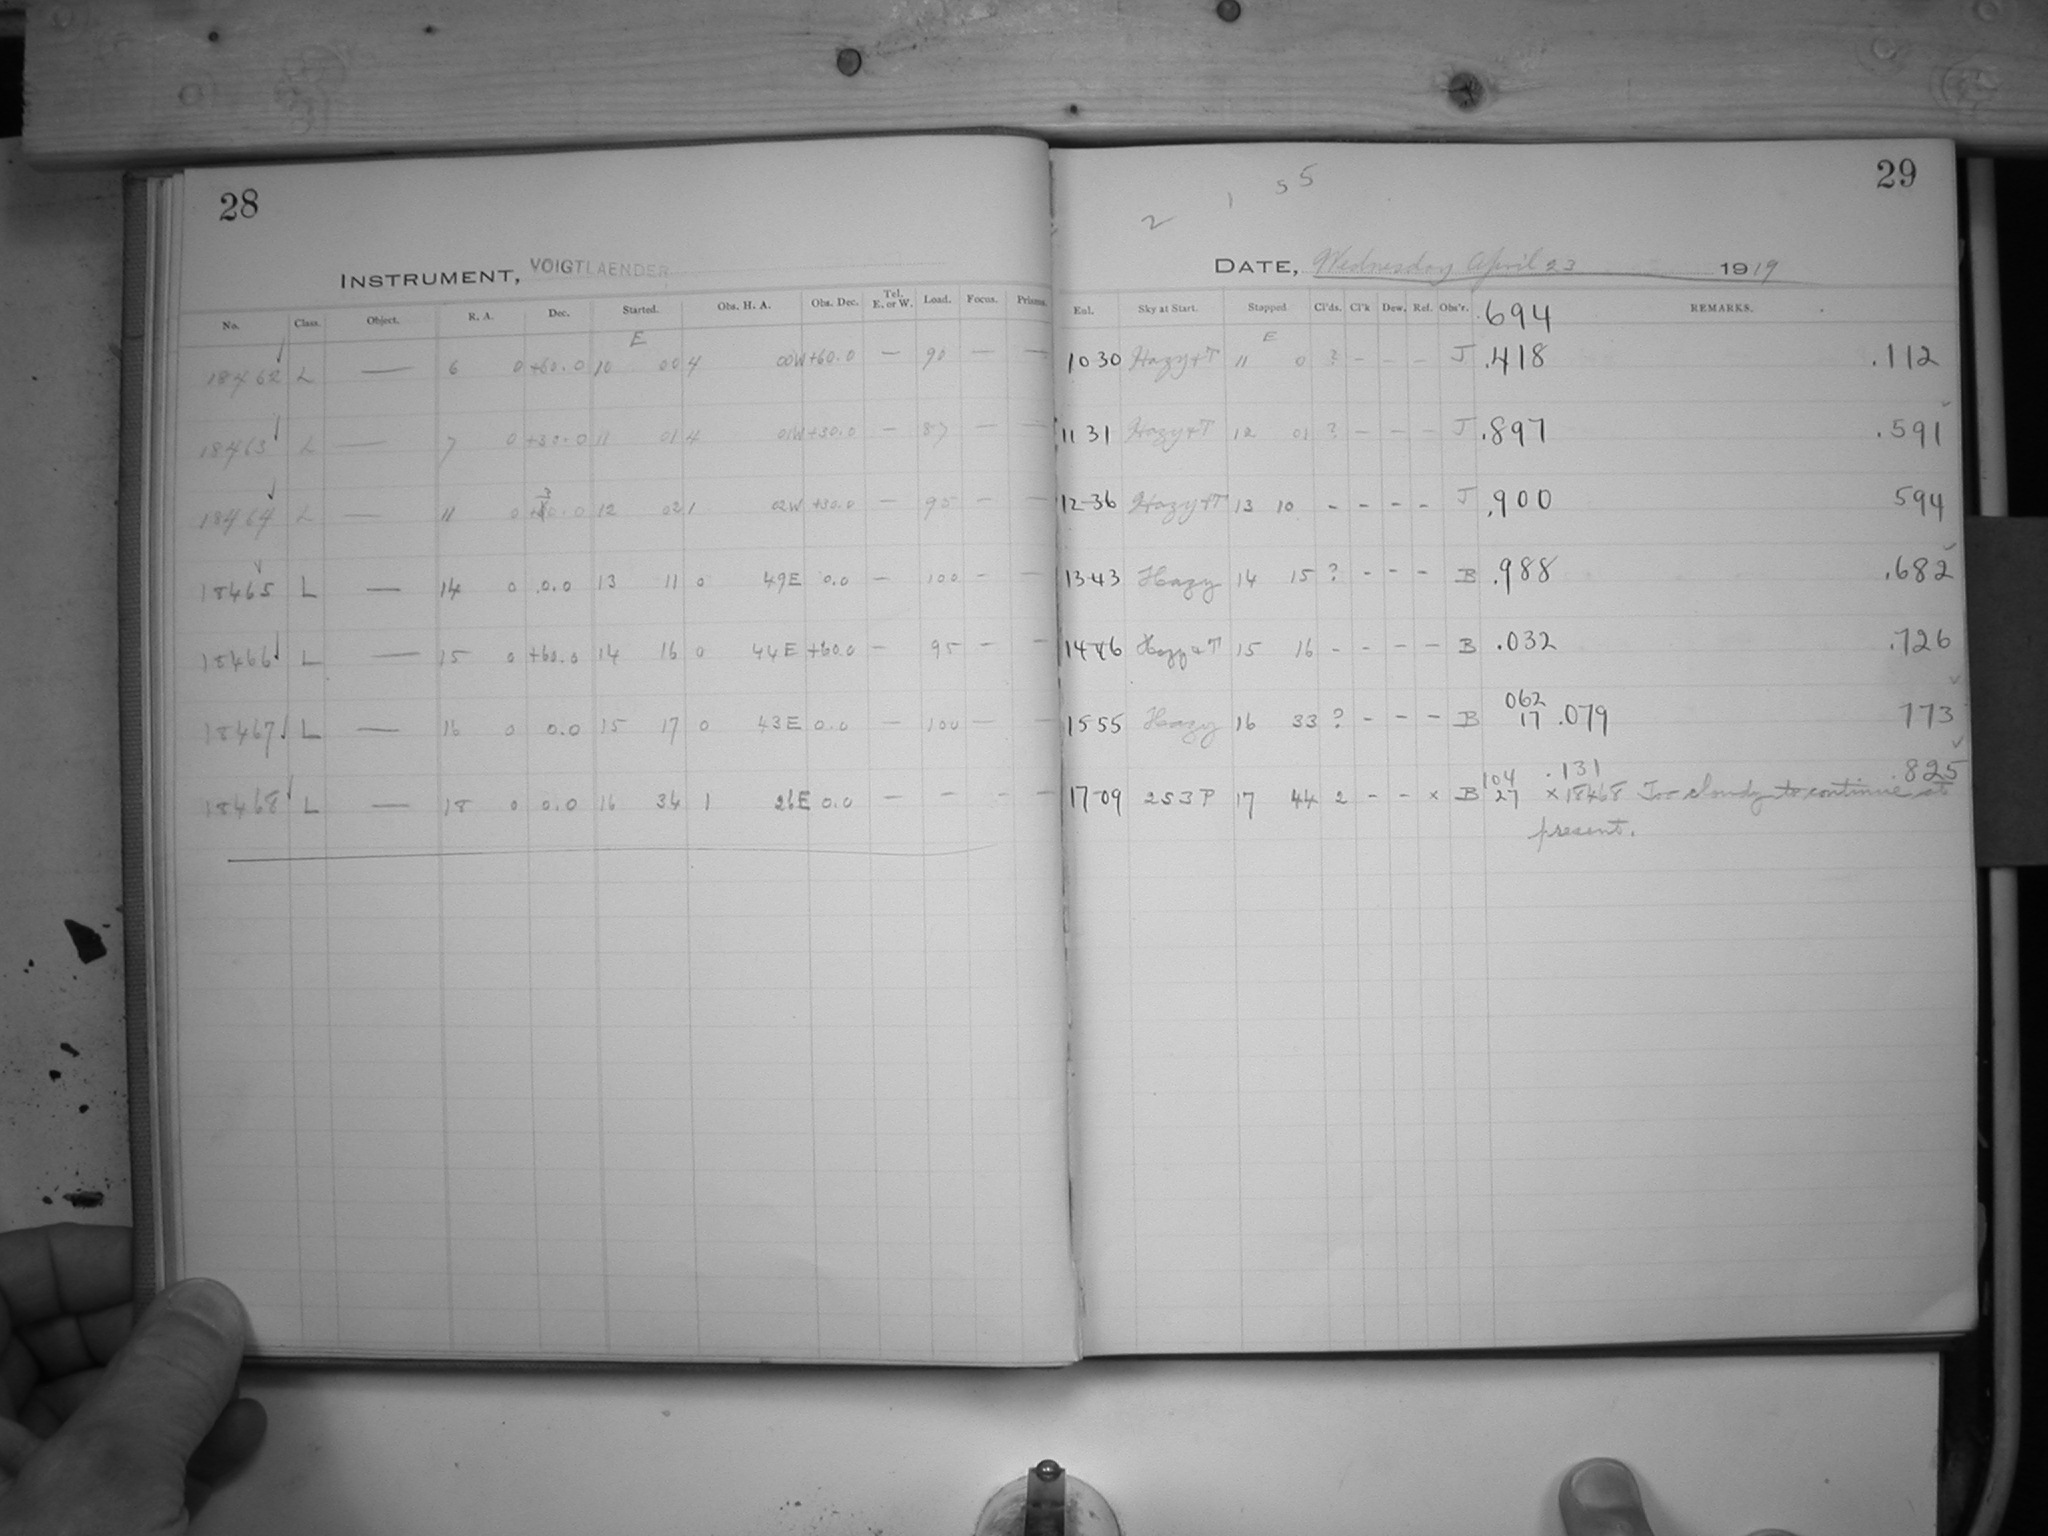 28
INSTRUMENT, VOIGTLAENDER
No. Class. Object. R. A. Dec. Started. Obs. H. A. Obs. Dec. Tel. E. or W. Load. Focus. Prisms.
E
18462 L — 6 0 +60.0 10 00 4 00W +60.0 — 90 — —
18463 L — 7 0 +30.0 11 01 4 01W +30.0 — 87 — —
3
18464 L — 11 0 0.0 12 02 1 02W +30.0 — 95 — —
18465 L — 14 0 0.0 13 11 0 49E 0.0 — 100 — —
18466 L — 15 0 +60.0 14 16 0 44E +60.0 — 95 — —
18467 L — 16 0 0.0 15 17 0 43E 0.0 — 100 — —
18468 L — 18 0 0.0 16 34 1 26E 0.0 — — — —
29
2 1 5 5
DATE, Wednesday April 23 1919
Enl. Sky at Start. Stopped Cl'ds. Cl'k Dew. Ref. Obs'r. .694 REMARKS.
E
10 30 Hazy+T 11 0 ? - - - J .418 .112
11 31 Hazy+T 12 01 ? - - - J .897 .591
12-36 Hazy+T 13 10 - - - - J .900 594
13-43 Hazy 14 15 ? - - - B .988 .682
14 46 Hazy+T 15 16 - - - - B .032 .726
062
15 55 Hazy 16 33 ? - - - B 17 .079 773
104 .131 .825
17-09 2S3P 17 44 2 - - x B 27 x18468 Too cloudy to continue at
present.